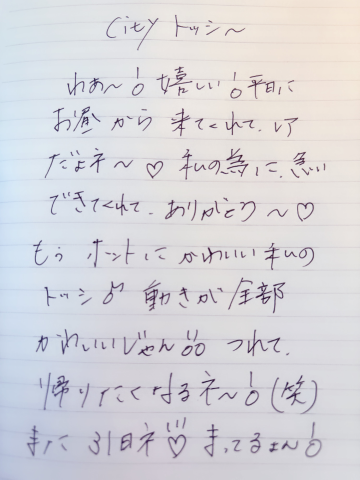 City トッシ〜
わぁ〜! 嬉しい! 平日に
お昼から 来てくれて、レア
だよネ〜♡ 私の為に、急い
できてくれて、ありがとう〜♡
もう ホントにかわいい私の
トッシ!! 動きが全部
かわいいじゃん!! つれて、
帰りたくなるネ〜!(笑)
また 31日ネ♡ まってるよん!